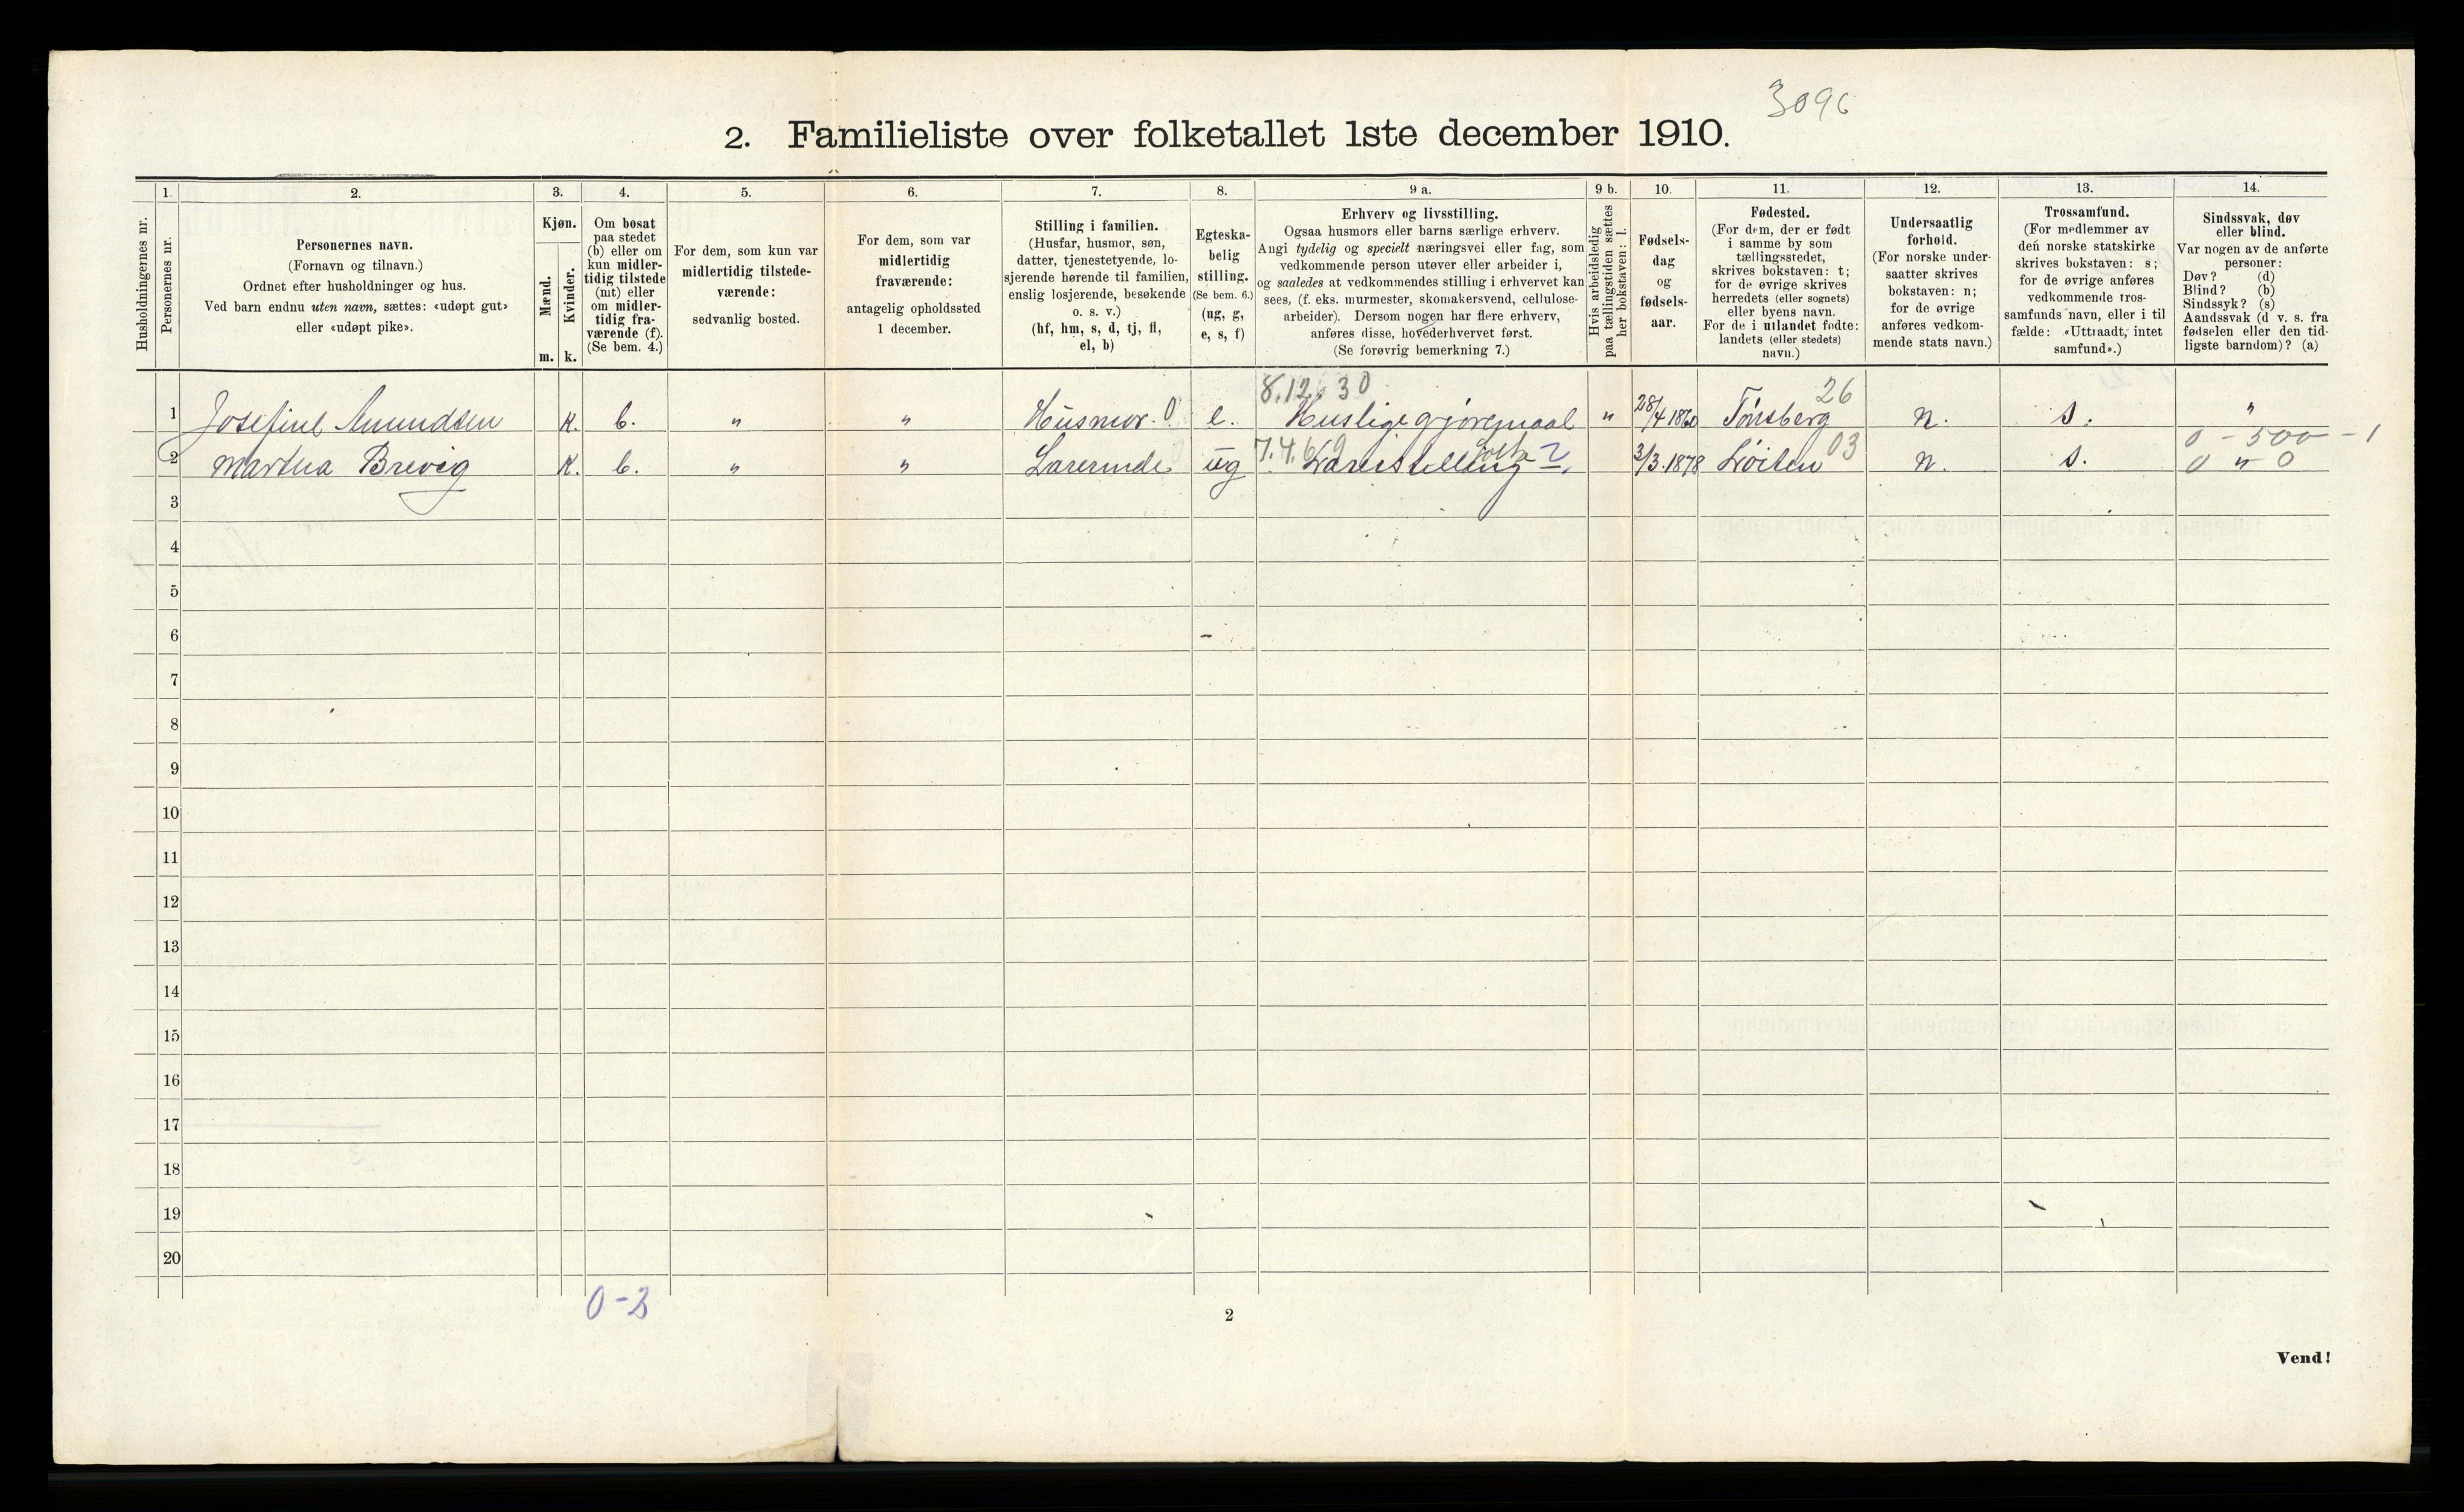 3096
2. Familieliste over folketallet 1ste december 1910.
Husholdningernes nr.
1. Personernes nr.
2. Personernes navn. (Fornavn og tilnavn.) Ordnet efter husholdninger og hus. Ved barn endnu uten navn, sættes: «udøpt gut» eller «udøpt pike».
3. Kjøn. Mænd. m. Kvinder. k.
4. Om bosat paa stedet (b) eller om kun midlertidig tilstede (mt) eller om midlertidig fraværende (f). (Se bem. 4.)
5. For dem, som kun var midlertidig tilstedeværende: sedvanlig bosted.
6. For dem, som var midlertidig fraværende: antagelig opholdssted 1 december.
7. Stilling i familien. (Husfar, husmor, søn, datter, tjenestetyende, losjerende hørende til familien, enslig losjerende, besøkende o. s. v.) (hf, hm, s, d, tj, fl, el, b)
8. Egteskabelig stilling. (Se bem. 6.) (ug, g, e, s, f)
9 a. Erhverv og livsstilling. Ogsaa husmors eller barns særlige erhverv. Angi tydelig og specielt næringsvei eller fag, som vedkommende person utøver eller arbeider i, og saaledes at vedkommendes stilling i erhvervet kan sees, (f. eks. murmester, skomakersvend, cellulosearbeider). Dersom nogen har flere erhverv, anføres disse, hovederhvervet først. (Se forøvrig bemerkning 7.)
9 b. Hvis arbeidsledig paa tællingstiden sættes her bokstaven: l.
10. Fødselsdag og fødselsaar.
11. Fødested. (For dem, der er født i samme by som tællingsstedet, skrives bokstaven: t; for de øvrige skrives herredets (eller sognets) eller byens navn. For de i utlandet fødte: landets (eller stedets) navn.)
12. Undersaatlig forhold. (For norske undersaatter skrives bokstaven: n; for de øvrige anføres vedkommende stats navn.)
13. Trossamfund. (For medlemmer av den norske statskirke skrives bokstaven: s; for de øvrige anføres vedkommende trossamfunds navn, eller i tilfælde: «Uttraadt, intet samfund».)
14. Sindssvak, døv eller blind. Var nogen av de anførte personer: Døv? (d) Blind? (b) Sindssyk? (s) Aandssvak (d v. s. fra fødselen eller den tidligste barndom)? (a)
8.12. 30 26
1 Josefine Amundsen k. b. " " Husmor. 0 e. Huslige gjøremaal " 28/4 1860 Tønsberg n. s. "
7.4.6.9 03 0 - 500 - 1
2 Martha Brevig k. b. " " Lærerinde ug Lærerstilling 3/3.1878 Løiten n. s. 0 " 0
3
4
5
6
7
8
9
10
11
12
13
14
15
16
17
18
19
20
0-2
2
Vend!